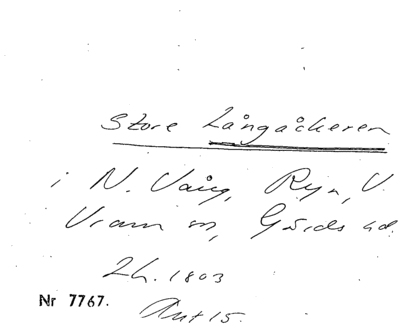 Store Långåckeren
i N. Vång, Ryn, V.
Vram sn, Gärds hd.
Lh. 1803
Nr 7767.
Akt 15.